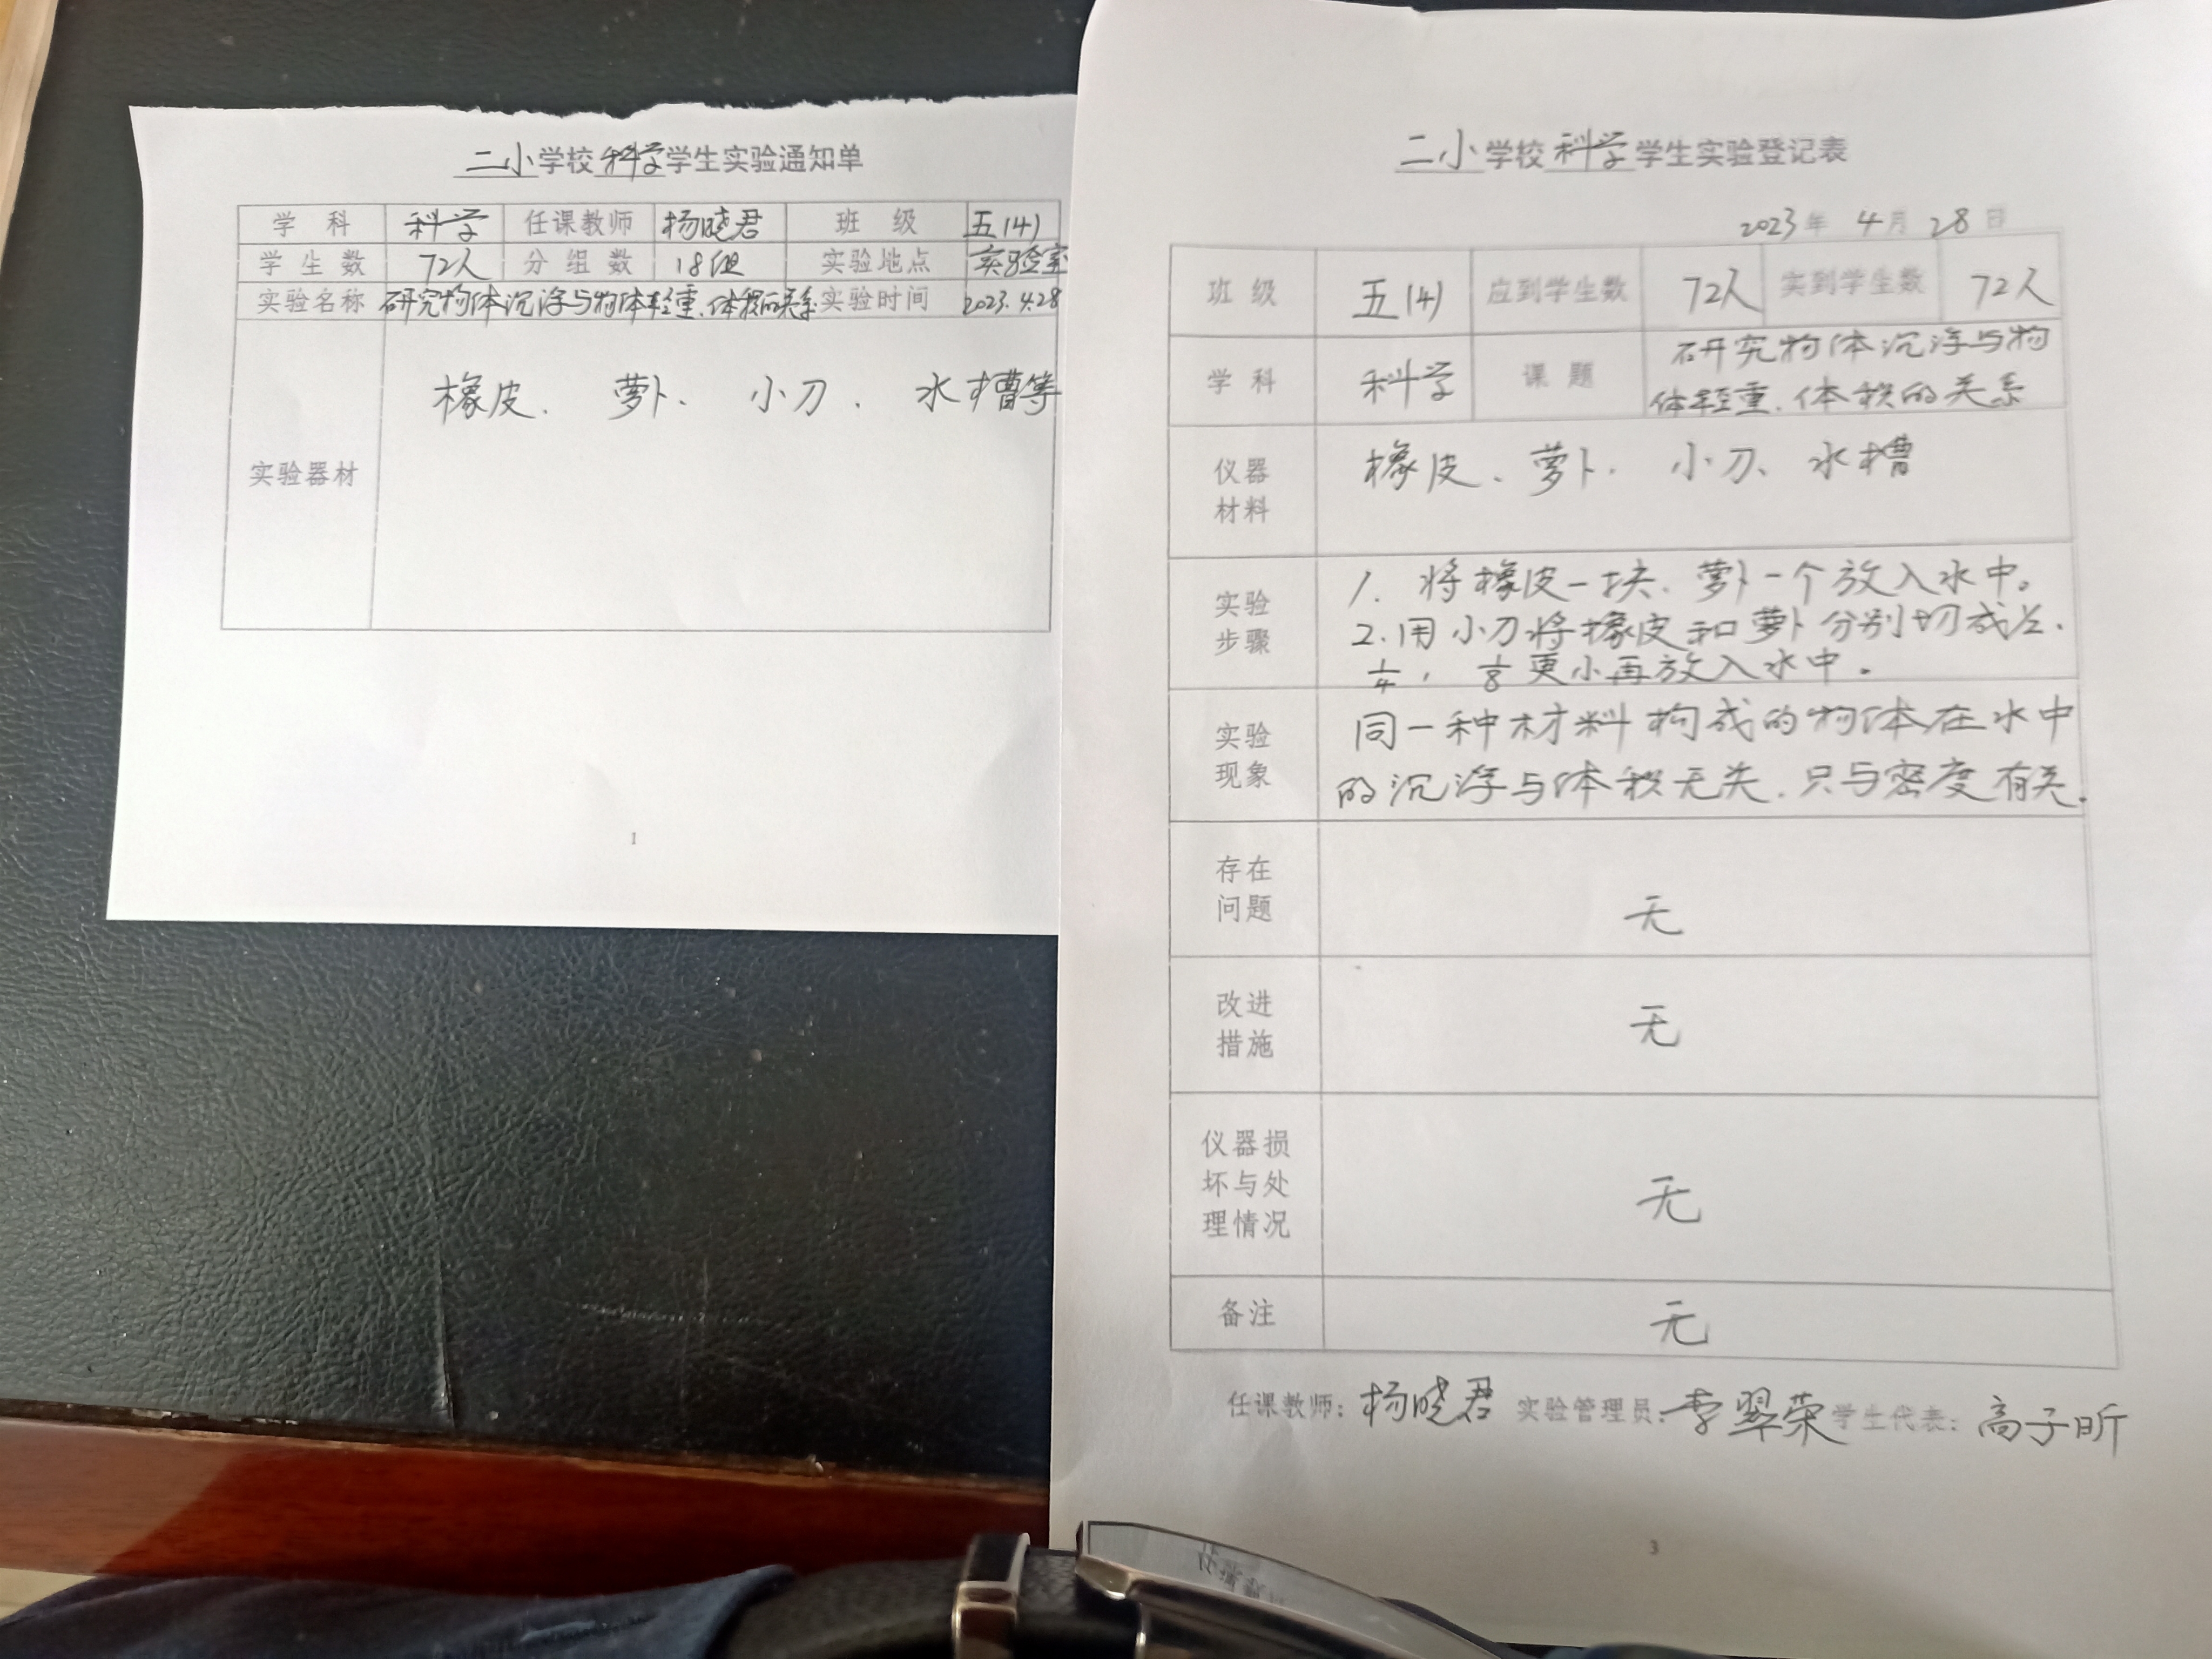 二小学校科学学生实验通知单
学 科 科学 任课教师 杨晓君 班 级 五(4)
学 生 数 72人 分 组 数 18组 实验地点 实验室
实验名称 研究物体沉浮与物体轻重、体积的关系 实验时间 2023.4.28
实验器材 橡皮、萝卜、小刀、水槽等
1
二小学校科学学生实验登记表
2023年 4月 28日
班 级 五(4) 应到学生数 72人 实到学生数 72人
学 科 科学 课 题 研究物体沉浮与物
体轻重、体积的关系
仪器
材料
橡皮、萝卜、小刀、水槽
实验
步骤
1. 将橡皮一块、萝卜一个放入水中。
2.用小刀将橡皮和萝卜分别切成½、
¼, ⅛更小再放入水中。
实验
现象
同一种材料构成的物体在水中
的沉浮与体积无关,只与密度有关.
存在
问题
无
改进
措施
无
仪器损
坏与处
理情况
无
备注
无
任课教师:杨晓君 实验管理员:李翠荣 学生代表:高子昕
3